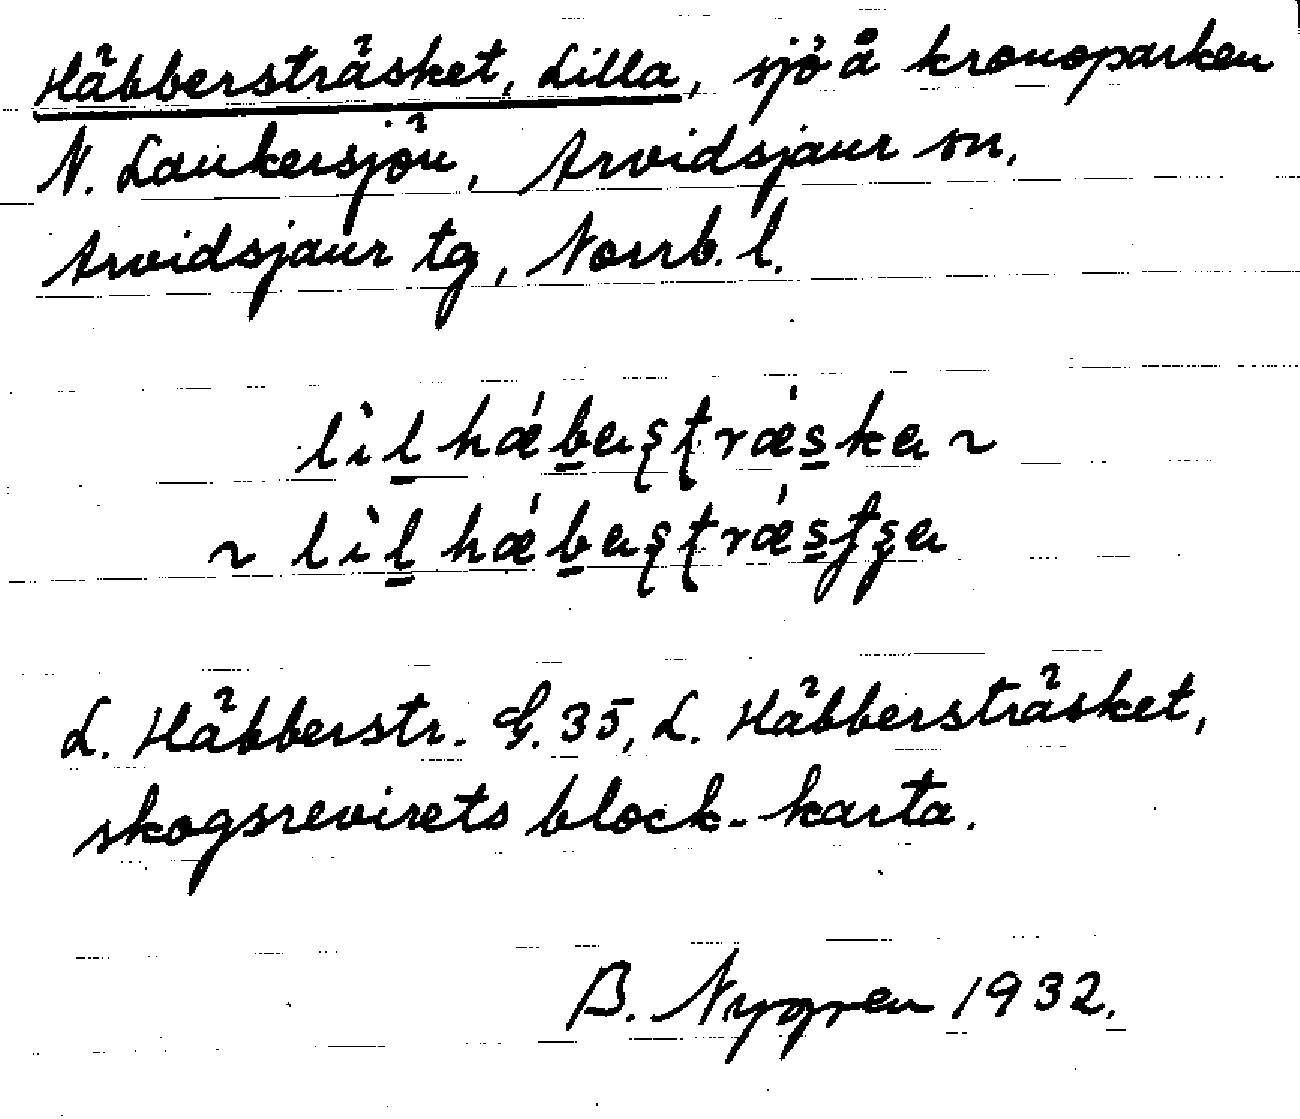 Häbbersträsket, Lilla, sjö å kronoparken
N. Laukersjön, Arvidsjaur sn,
Arvidsjaur tg, Norrb. l.
lìl̲ hǽb̲aʂʈrǽs̲ka ~
~ lìl̲ hǽb̲aʂʈrǽs̲tʂa
L. Häbberstr. G. 35, L. Häbbersträsket,
skogsrevirets block-karta.
B. Nygren 1932.